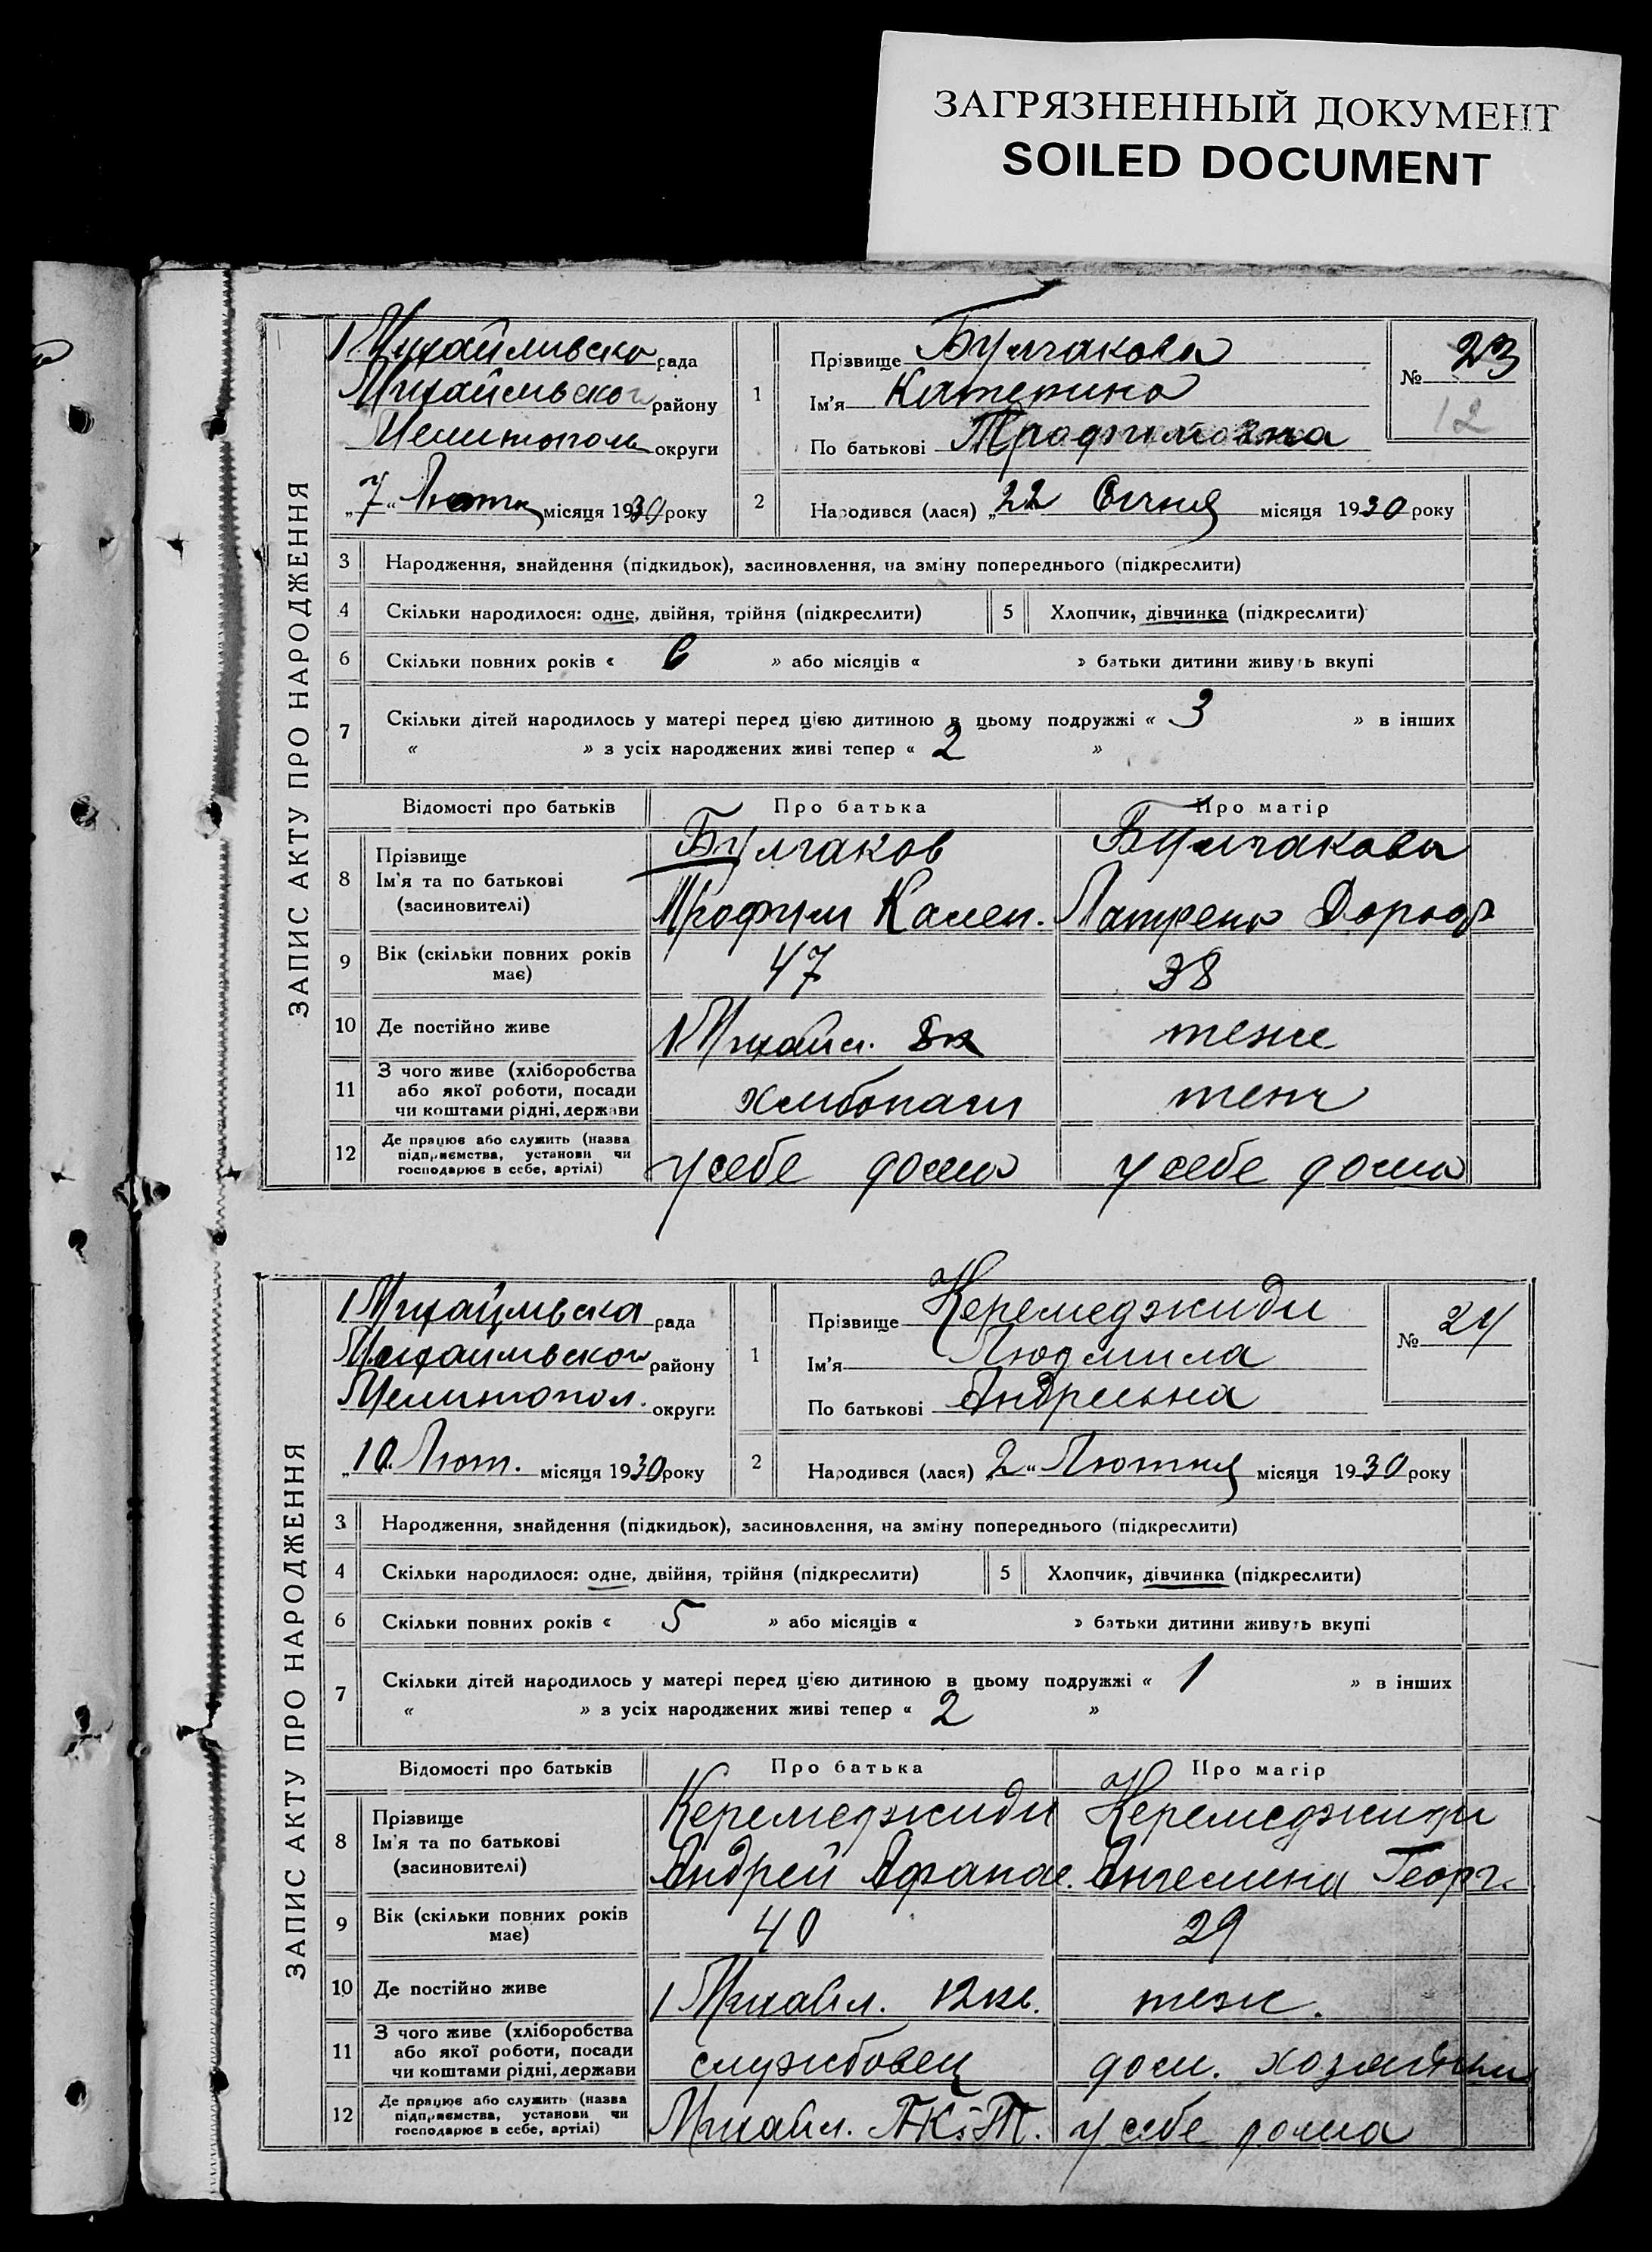 ЗАГРЯЗНЕННЫЙ ДОКУМЕНТ
SOILED DOCUMENT
ЗАПИС АКТУ ПРО НАРОДЖЕННЯ
1 Михайливска рада
Михайлвської району
Мелитополь округи
„7“ Лютня місяця 1930 року
1
Прізвище Булгакова
Ім'я Катерина
По батькові Трофимовна
№ 23
12
2
Народився (лася) „22 Січня місяця 1930 року
3 Народження, знайдення (підкидьок), засиновлення, на зміну попереднього (підкреслити)
4 Скільки народилося: одне, двійня, трійня (підкреслити) 5 Хлопчик, дівчинка (підкреслити)
6 Скільки повних років « 6 » або місяців « » батьки дитини живуть вкупі
7 Скільки дітей народилось у матері перед цією дитиною в цьому подружжі « 3 » в інших
« » з усіх народжених живі тепер « 2 »
Відомості про батьків Про батька Про матір
8 Прізвище
Ім'я та по батькові
(засновителі)
Булгаков
Трофим Камен.
Булгакова
Патрена
9 Вік (скільки повних років має) 47 38
10 Де постійно живе 1 Михайл. теже
11 З чого живе (хліборобства
або якої роботи, посади
чи коштами рідні, держави
хлибопаш теж
12 Де працює або служить (назва
підприємства, установи чи
господарює в себе, артілі)
у себе дома у себе дома
ЗАПИС АКТУ ПРО НАРОДЖЕННЯ
1 Михайлвска рада
Михайлвской району
Мелитопол. округи
„10“ Лют. місяця 1930 року
1
Прізвище Керемеджиди
Ім'я Людмила
По батькові Андреевна
№ 24
2
Народився (лася) „2“ Лютня місяця 1930 року
3 Народження, знайдення (підкидьок), засиновлення, на зміну попереднього (підкреслити)
4 Скільки народилося: одне, двійня, трійня (підкреслити) 5 Хлопчик, дівчинка (підкреслити)
6 Скільки повних років « 5 » або місяців « » батьки дитини живуть вкупі
7 Скільки дітей народилось у матері перед цією дитиною в цьому подружжі « 1 » в інших
« » з усіх народжених живі тепер « 2 »
Відомості про батьків Про батька Про матір
8 Прізвище
Ім'я та по батькові
(засиновителі)
Керемеджиди
Андрей Афанас.
Керемеджиди
Ангелина Георг.
9 Вік (скільки повних років має) 40 29
10 Де постійно живе 1 Михайл. 12 кв. теж.
11 З чого живе (хліборобства
або якої роботи, посади
чи коштами рідні, держави
службовец дом. хозяйка
12 Де працює або служить (назва
підприємства, установи чи
господарює в себе, артілі)
Михайл. у себе дома